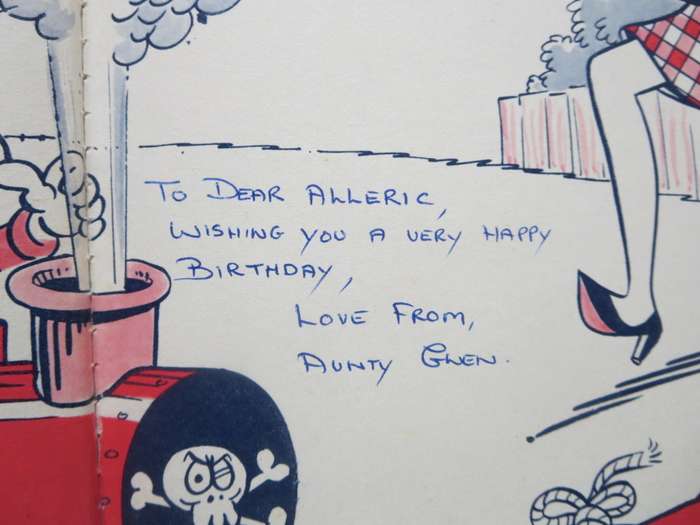 To Dear Alleric,
Wishing you a very happy
Birthday,
Love From,
Aunty Gwen.